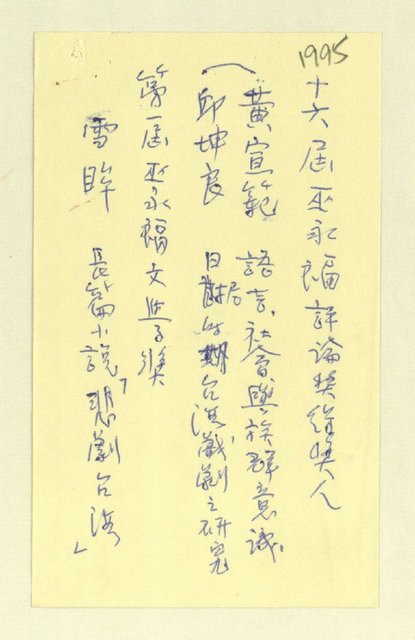 1995
十六屆巫永福評論獎得獎人
黃宣範 語言、社會與族群意識
邱坤良 日據時期台灣戲劇之研究
第一屆巫永福文學獎
雪眸 長篇小說「悲劇台灣」